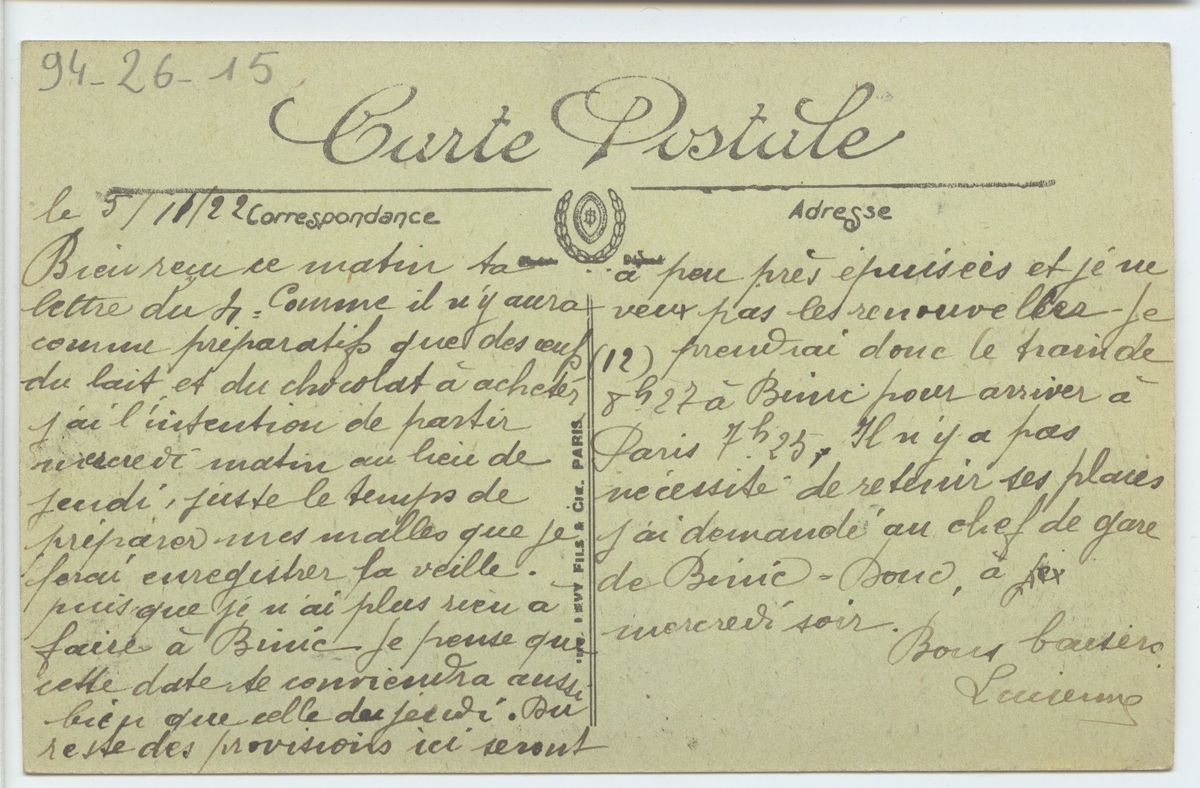 94-26-15
Carte Postale
le 5/11/22
Correspondance
Adresse
Bien reçu ce matin ta
lettre du 4. Comme il n'y aura
comme préparatifs que des œufs
du lait et du chocolat à acheter
j'ai l'intention de partir
mercredi matin au lieu de
jeudi, juste le temps de
préparer mes malles que je
ferai enregistrer la veille.
puisque je n'ai plus rien à
faire à Binic je pense que
cette date te conviendra aussi
bien que celle de jeudi. Du
reste des provisions ici seront
IMP. LEVY FILS & CIE. PARIS
à peu près épuisées et je ne
veux pas les renouveller - Je
(12) prendrai donc le train de
8h27 à Binic pour arriver à
Paris 7h.25. Il n'y a pas
nécessité de retenir ses places
j'ai demandé au chef de gare
de Binic - Donc, à
mercredi soir.
Bons baisers
Lucienne